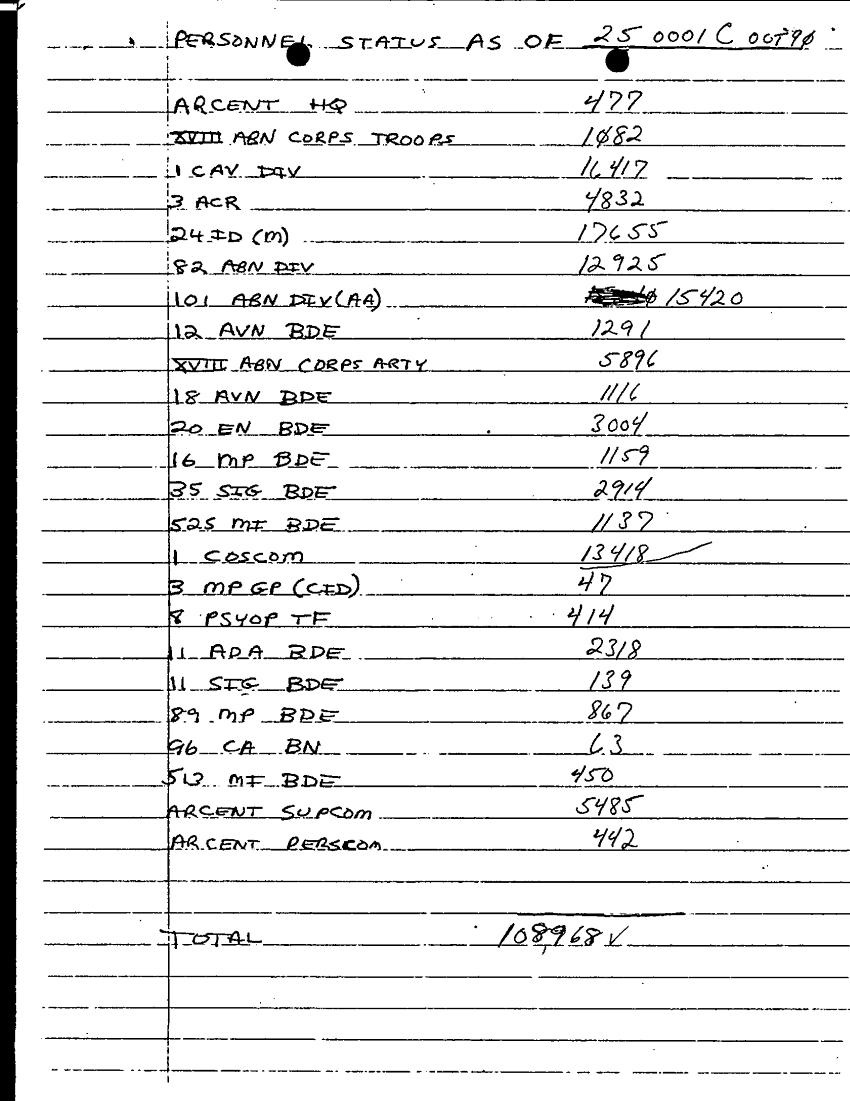 PERSONNEL STATUS AS OF 25 0001 C OCT 90
ARCENT HQ 477
XVIII ABN CORPS TROOPS 1082
1 CAV DIV 16417
3 ACR 4832
24 ID (M) 17655
82 ABN DIV 12925
101 ABN DIV (AA) 15420
12 AVN BDE 1291
XVIII ABN CORPS ARTY 5896
18 AVN BDE 1116
20 EN BDE 3004
16 MP BDE 1159
35 SIG BDE 2914
525 MI BDE 1137
1 COSCOM 13418
3 MP GP (CID) 47
8 PSYOP TF 414
11 ADA BDE 2318
11 SIG BDE 139
89 MP BDE 867
96 CA BN 63
513 MI BDE 450
ARCENT SUPCOM 5485
ARCENT PERSCOM 442
TOTAL 108,968 ✓